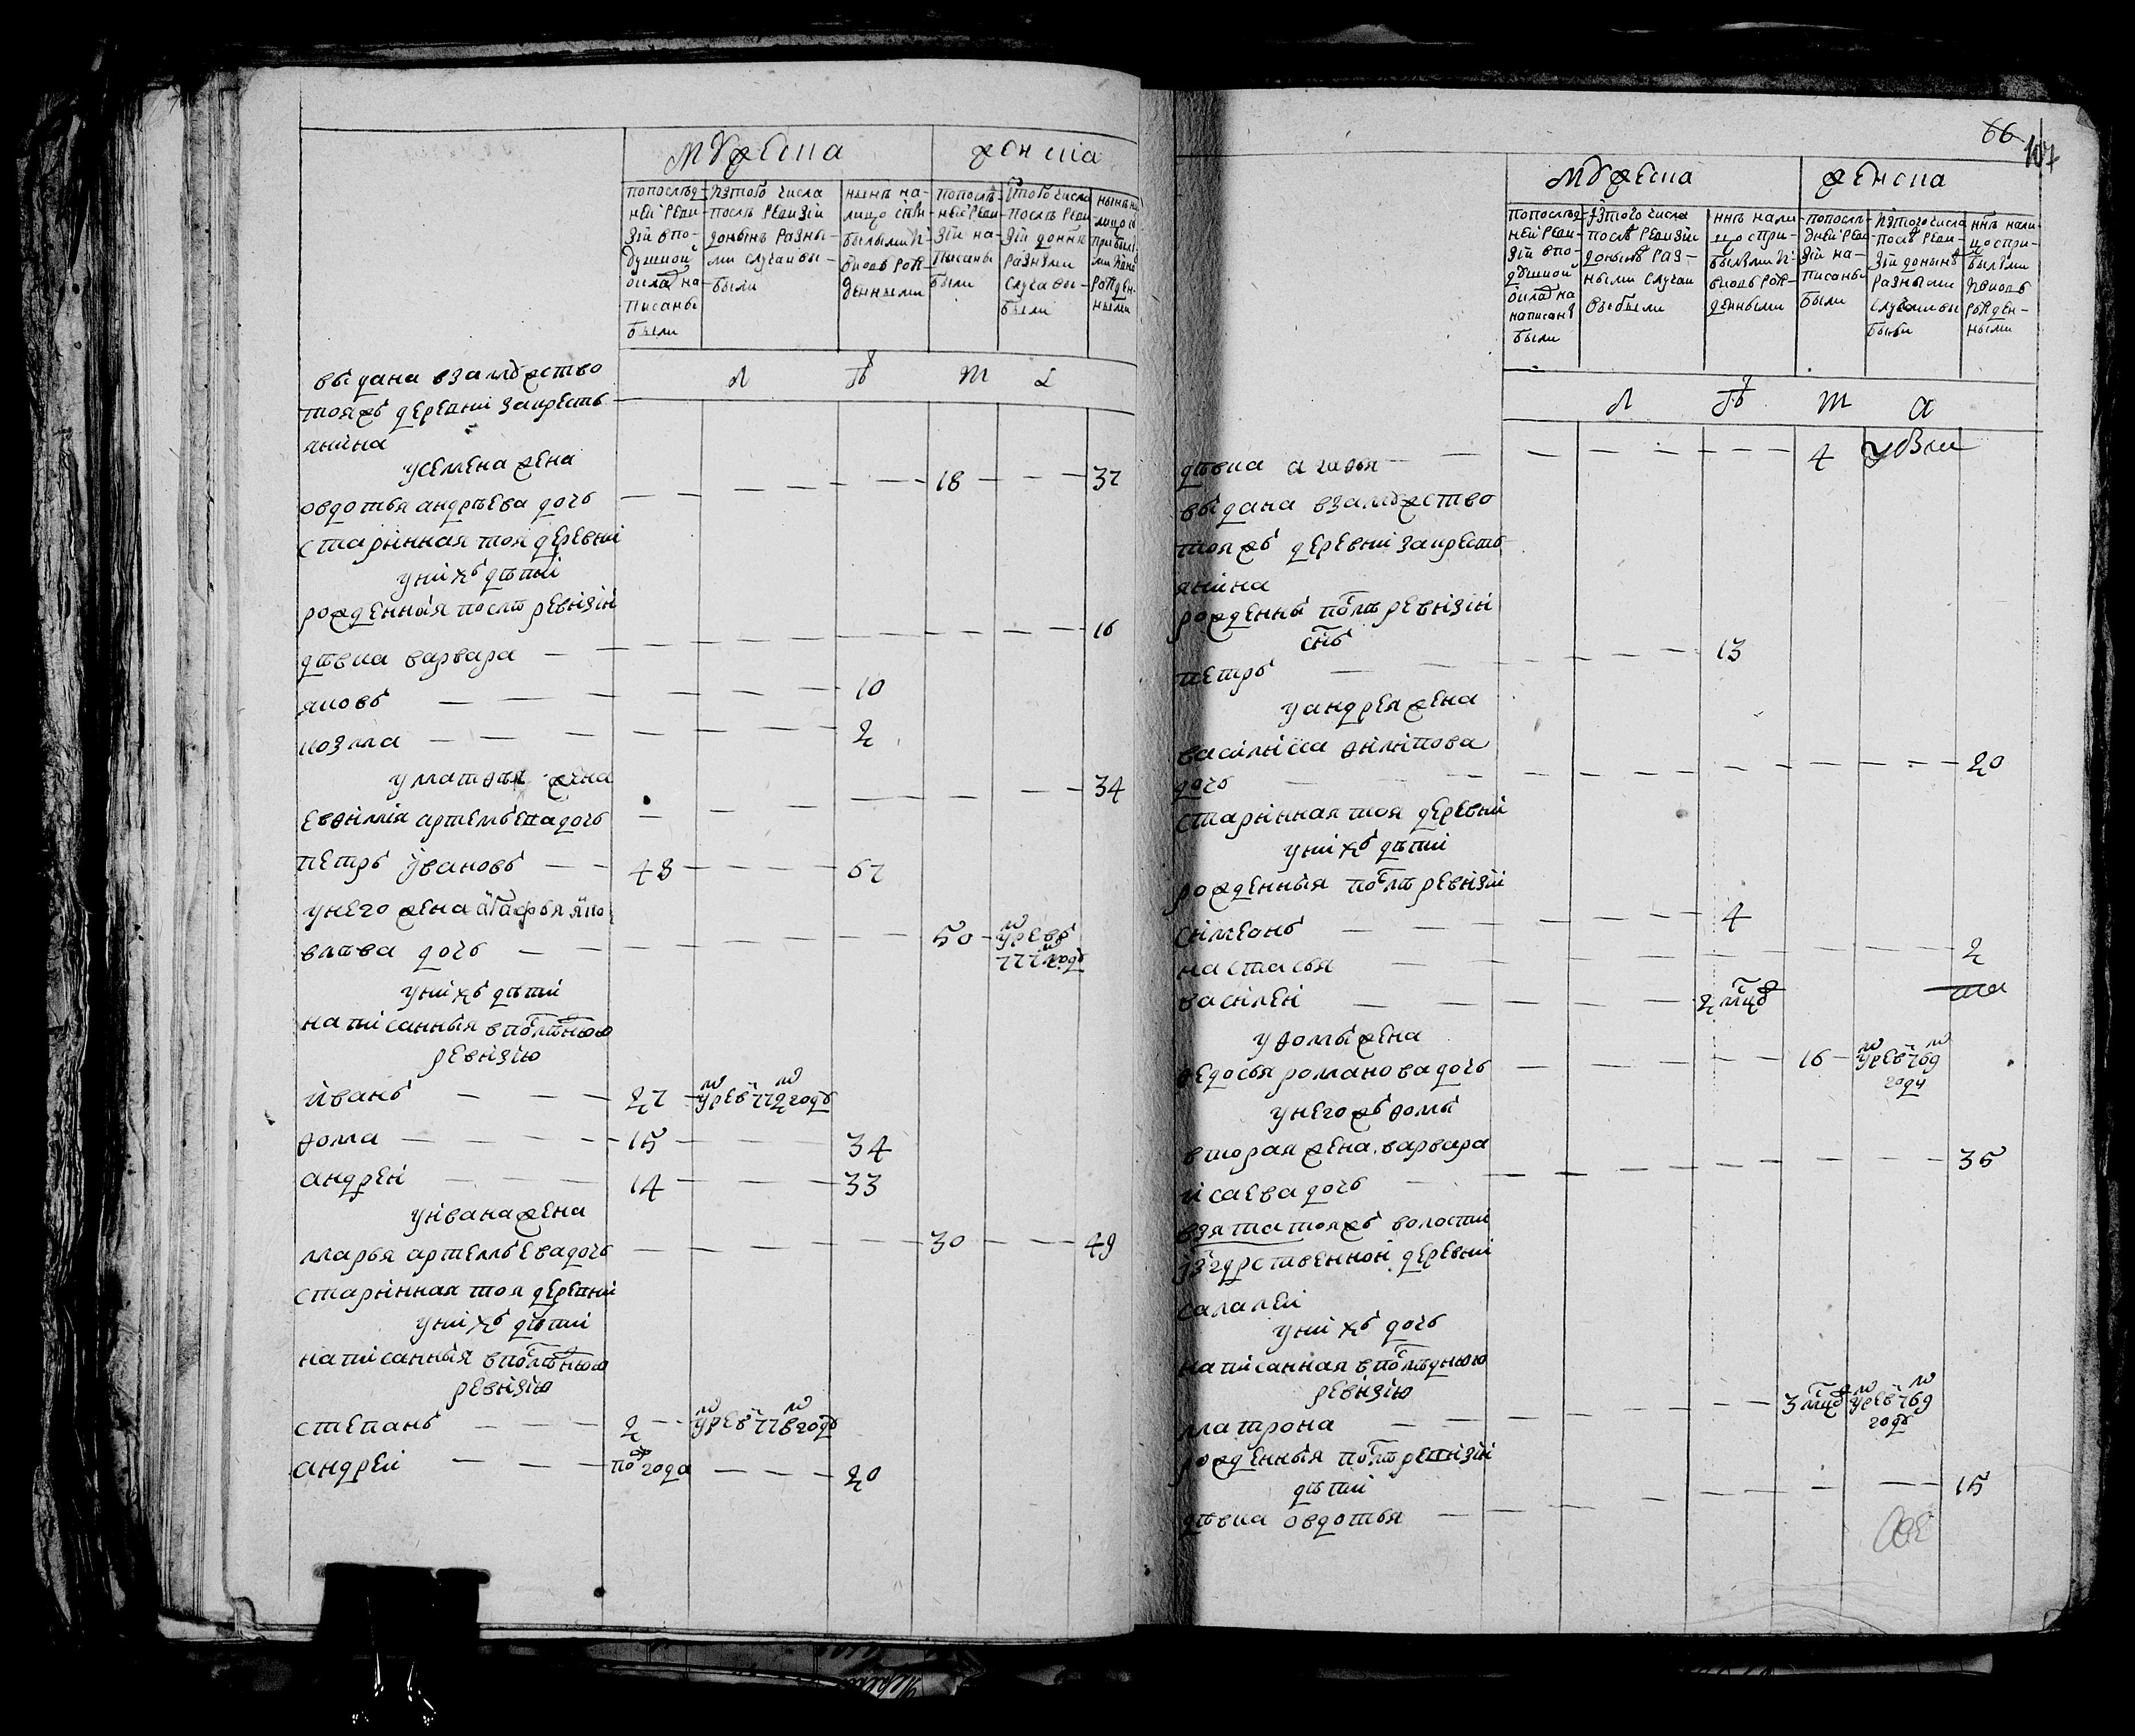 мужеска
женска
попослед-
ней реви-
зiи впо-
душной
оклад на-
писаны
были
изтого числа
после ревизiи
доныне разны-
ми случаи вы-
были
ныне на-
лицо спри-
былыми и
вновь рож-
денными
попослѣ-
ней реви-
зiи на-
писаны
были
изтого числа
после реви-
зiи доныне
разными
случаи вы-
были
лѣта
выдана взамужство
тояжъ деревни закресть
янина
усемена жена
овдотья андрѣева дочь — 18 — 37
старинная тоя деревни
унихъ дѣти
рожденныя послѣ ревизiи
дѣвка варвара — 16
яковъ — 10
козма — 2
уматфѣя жена
евѳимiя артемьева дочь — 34
петръ ивановъ — 48 — 67
унего жена агафья яко
влѣва дочь — 50 — умре въ 777 годѣ
унихъ дѣти
написанныя впослѣднюю
ревизiю
иванъ — 27 — умре въ 772 годѣ
ѳома — 15 — 34
андреи — 14 — 33
уивана жена
марья артемьева дочь — 30 — 49
старинная тоя деревни
унихъ дѣти
написанныя впослѣднюю
ревизiю
степанъ — 2 — умре въ 772 годѣ
андреи — полгода — 20
66
107
мужеска
женска
попослед-
ней реви-
зiи впо-
душной
оклад на
написаны
были
изтого числа
после ревизiи
доныне раз-
ными случаи
выбыли
нне нали-
цо спри-
былыми и
вновь рож-
денными
попослѣ-
дней реви-
зiи на-
писаны
были
изтого числа
после реви-
зiи доныне
разными
случаи вы
были
нне нали-
цо спри-
былыми
ивновь
рожден-
ными
лѣта
дѣвка агафья — 4
выдана взамужство
тояжъ деревни закресть
янина
рожденны послѣ ревизiи
снъ
петръ — 13
уандрея жена
василисса ѳилипова
дочь — 20
старинная тоя деревни
унихъ дѣти
рожденныя послѣ ревизiи
симеонъ — 4
настасья — 2
василеи — 2 мцѣ
уѳомы жена
ѳедосья романова дочь — 16 — умре въ 769 годѣ
унегожъ ѳомы
вторая жена варвара
исаева дочь — 35
взята тояжъ волости
изгдрственной деревни
унихъ дочь
написанная впослѣднюю
ревизiю
матрона — 3 мцѣ умре въ 769 годѣ
рожденныя послѣ ревизiи
дѣти
дѣвка овдотья — 15